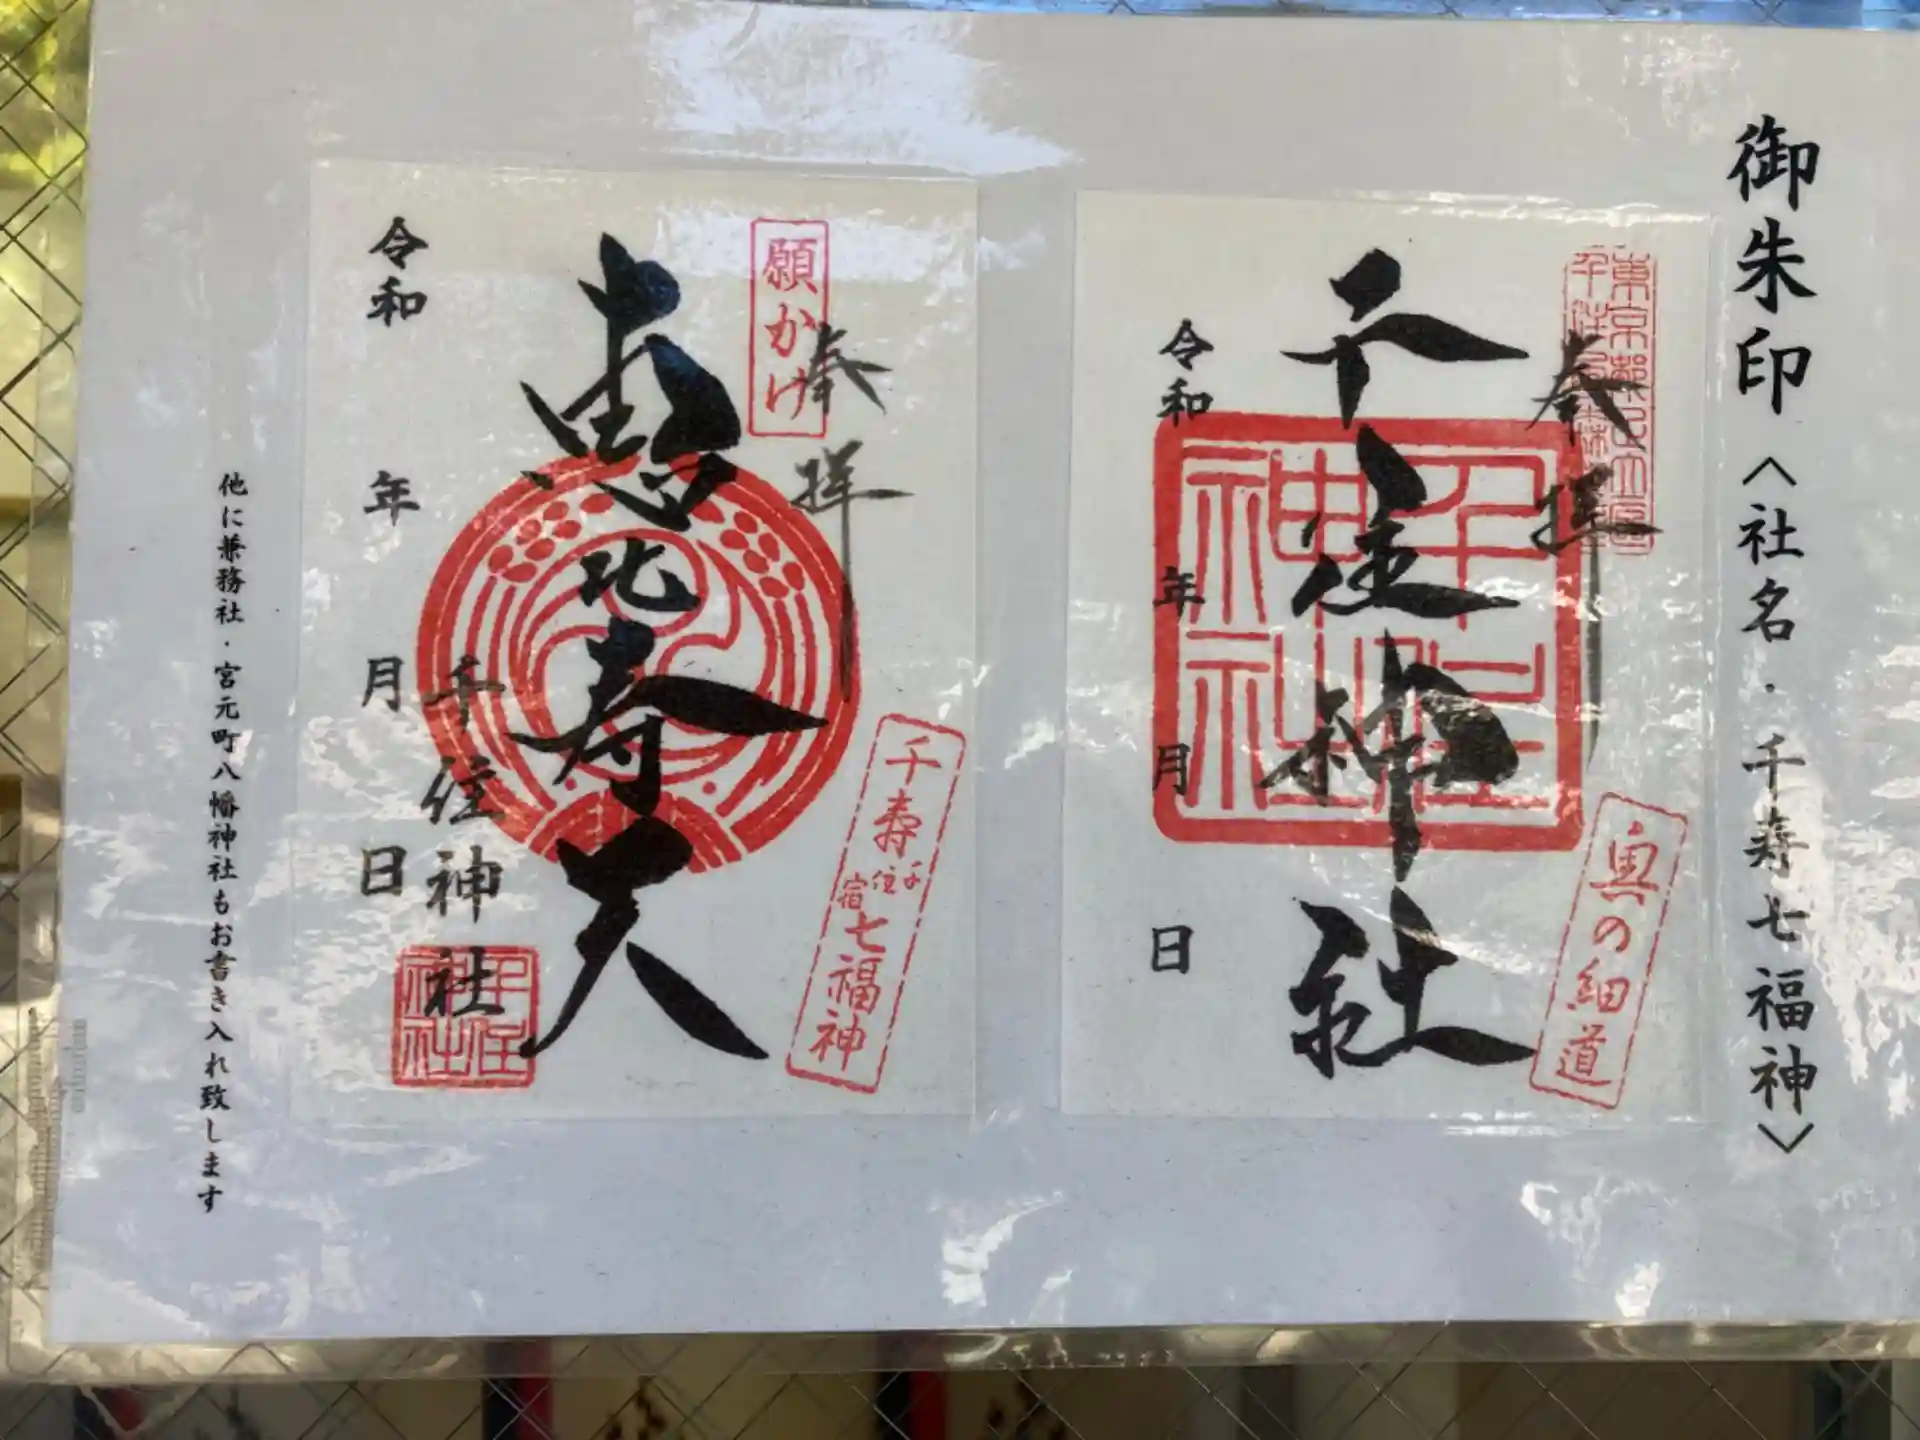 御朱印〈社名・千寿七福神〉
奉拝
千住神社
令和 年 月 日
千住神社
奥の細道
願かけ
奉拝
恵比寿天
千寿七福神
千住宿
令和 年 月 日
千住神社
千住神社
他に兼務社・宮元町八幡神社もお書き入れ致します